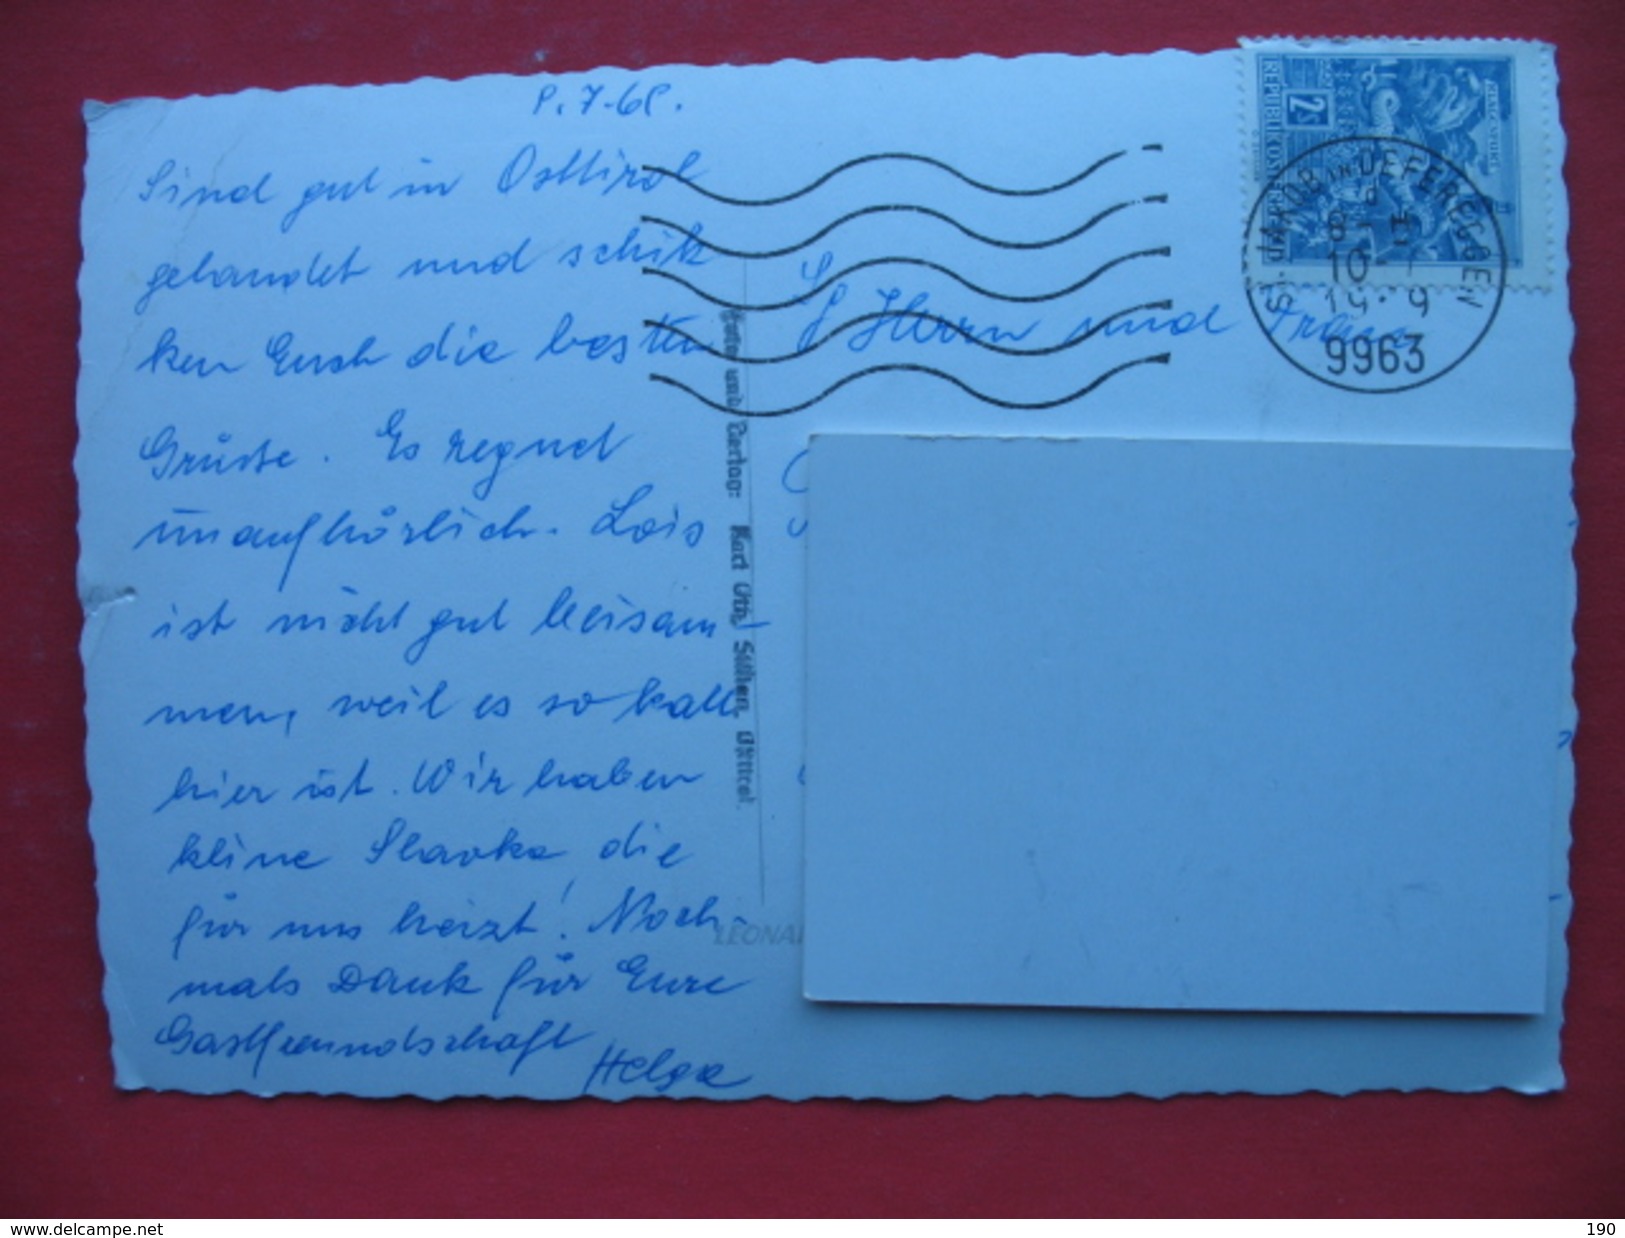 8.7.68.
Sind gut in Osttirol
gelandet und schik
ken Euch die besten
Grüsse. Es regnet
unaufhörlich. Lois
ist nicht gut beisam-
men, weil es so kalt
hier ist. Wir haben
kline Slavka die
für uns heizt! Noch-
mals Dank für Eure
Gastfreundschaft
Helga
Foto und Verlag: Karl Uth, Sillian, Osttirol.
Herrn und Frau
REPUBLIK ÖSTERREICH
2S
KLAGENFURT
ST. JAKOB IN DEFEREGGEN
9963
LEONA
www.delcampe.net
190